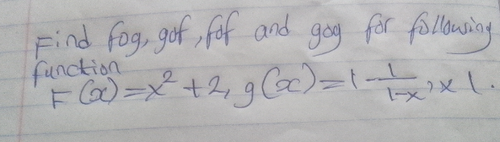 Find fog, gof, fof and gog for following
function
F(x) = x² + 2, g(x) = 1 - 1/(1-x), x 1.